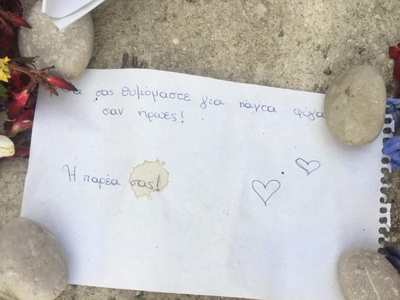 Θα σας θυμόμαστε για πάντα φίγα
σαν ηρωες!
Η παρέα σας!